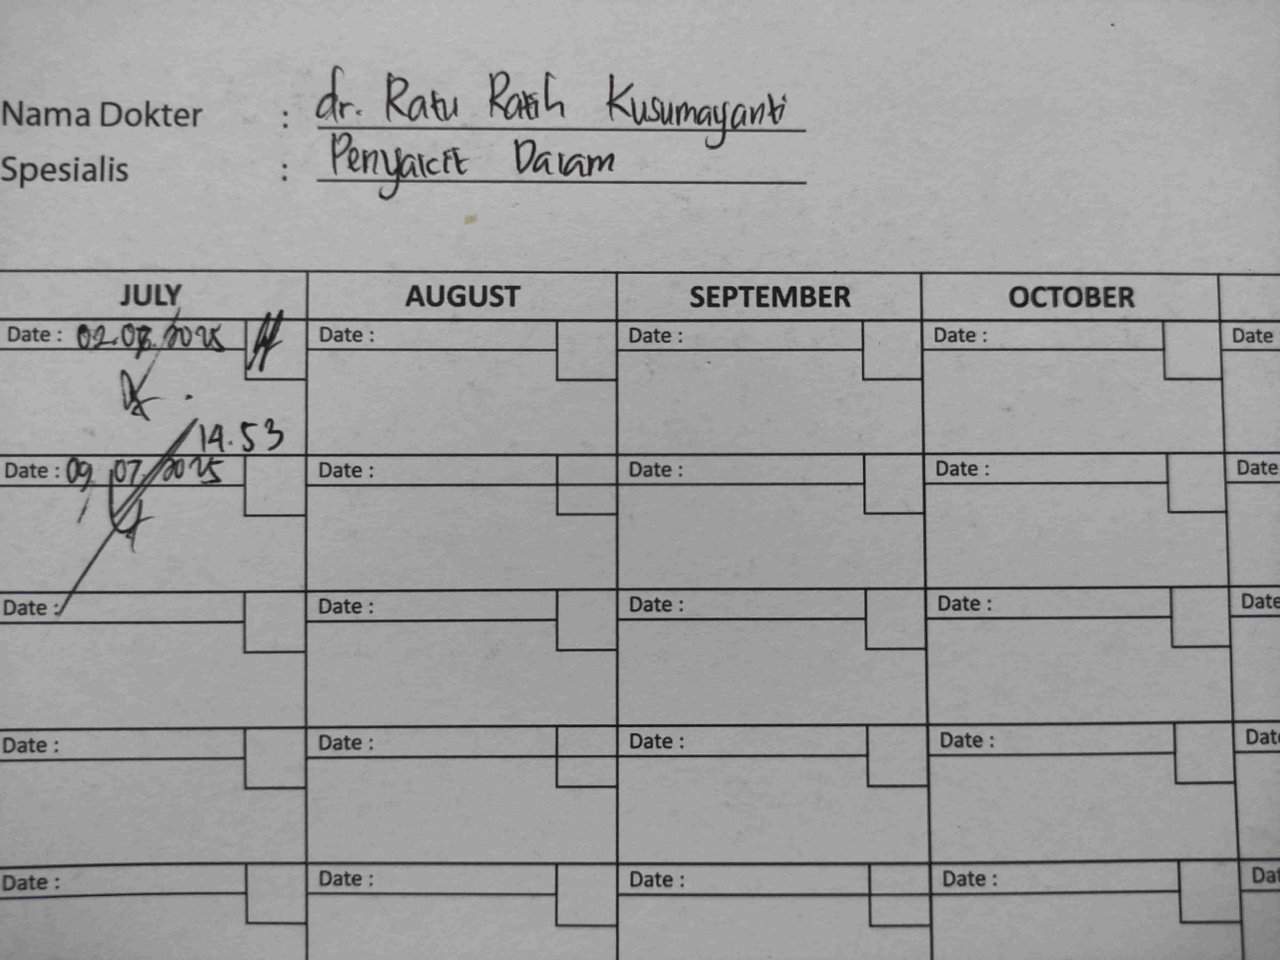 Nama Dokter : dr. Ratu Ratih Kusumayanti
Spesialis : Penyakit Dalam
JULY AUGUST SEPTEMBER OCTOBER
Date : 02.07.2025 Date : Date : Date : Date
14.53
Date : 09/07/2025 Date : Date : Date : Date
Date : Date : Date : Date : Date
Date : Date : Date : Date : Dat
Date : Date : Date : Date : Dat